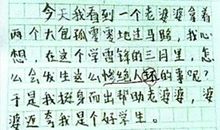 今天我看到一个老婆婆拿着
两个大包孤零零地过马路，我心
想，在这个学雷锋的三月里，怎
么会发生这么惨绝人寰的事呢？于
是我挺身而出帮助老婆婆，婆
婆还夸我是个好学生。